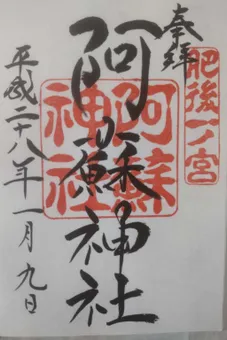 奉拝
肥後一ノ宮
阿蘇神社
阿蘇神社
平成二十八年一月九日